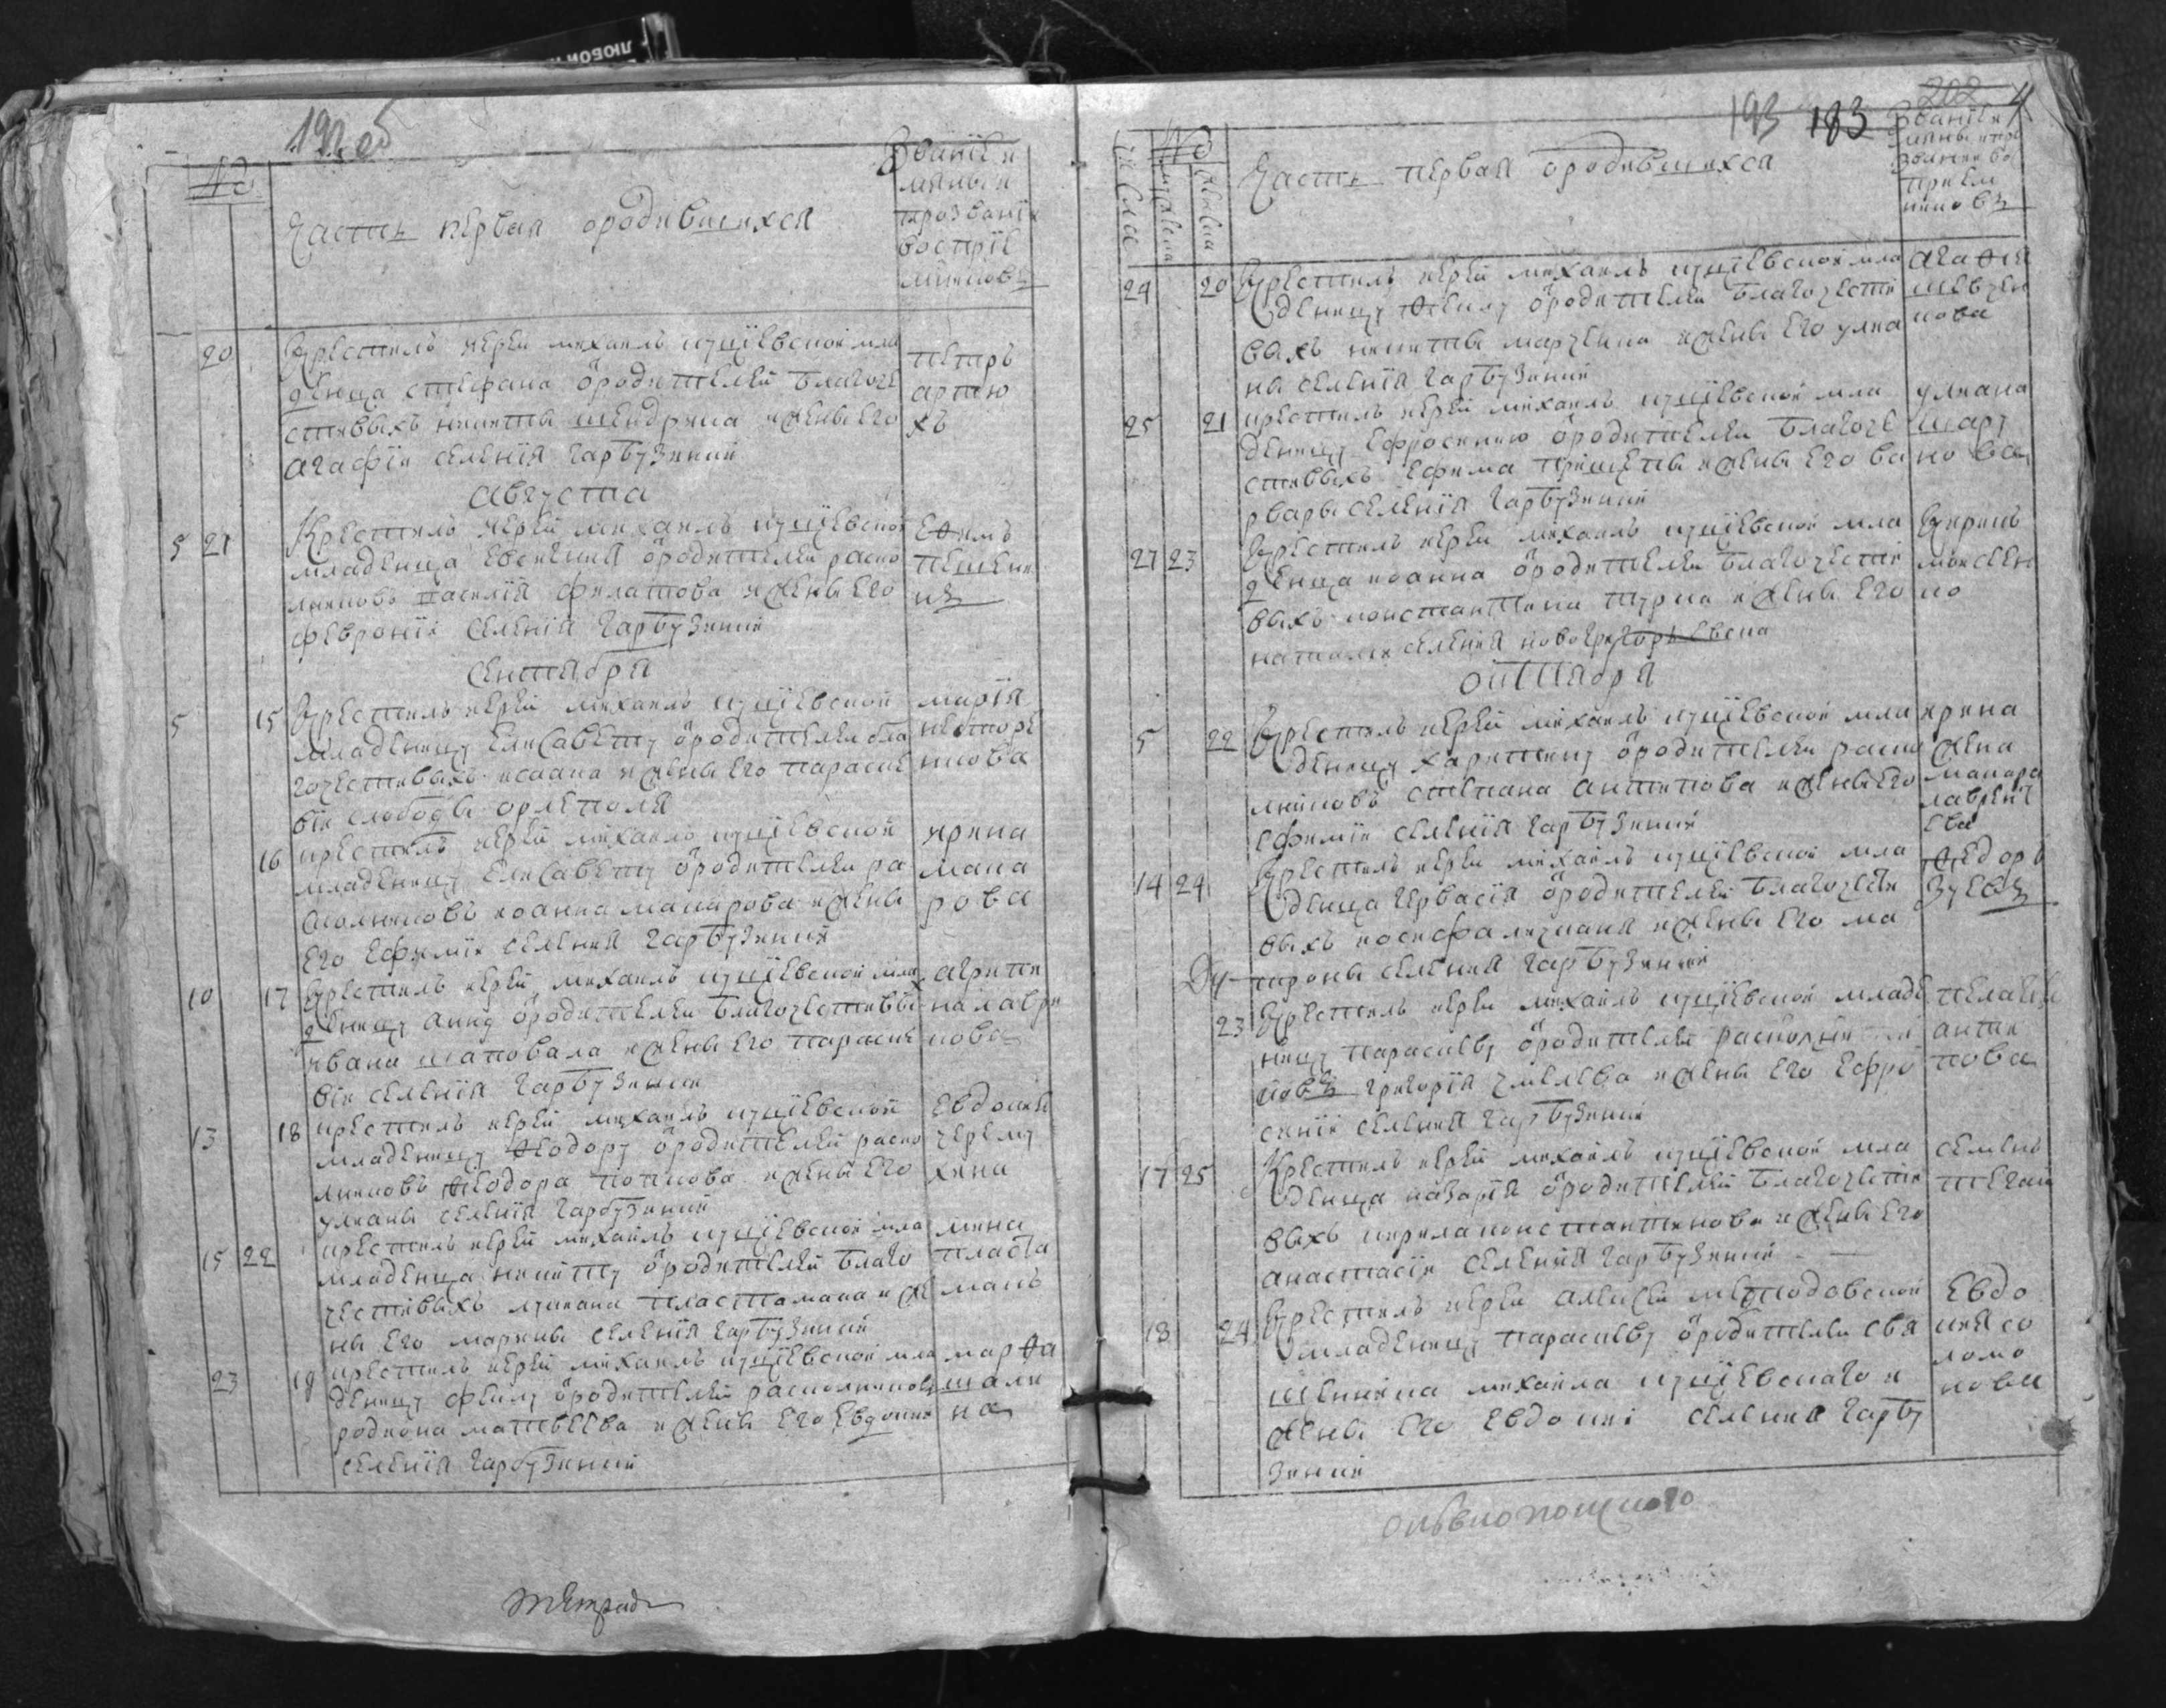 192 об
№
Часть первая ородившихся
Званїе и
имяны и
прозванїе
воспрїе
мниковъ
20
Крестилъ иерей михаилъ куцїевской мла
денца стефана ѿродителей благоче
стивыхъ никиты шендрика ижены его
агафїи селенїя гарбузинки
петръ
арпею
хъ
Августа
5 21
Крестилъ иерей михаилъ куцїевской
младенца евсигния ѿродителей раско
лниковъ василїя филатова ижены его
февронїи селенїя гарбузинки
Еѳимъ
Сентября
5 15
Крестилъ иерей михаилъ куцїевской
младеницу елисавету ѿродителей бла
гочестивыхъ исаака ижены его параске
вїи слободы орлеполя
марїя
несторе
нкова
16
крестилъ иерей михаилъ куцїевской
младеницу елисавету ѿродителей ра
сколниковъ иоанна макарова ижены
его ефимїи селения гарбузинки
ирина
мака
рова
10 17
Крестилъ иерей михаилъ куцїевской мла
деницу анну ѿродителей благочестивы
ивана шаповала ижены его параске
вїи селенїя гарбузинки
агрипи
на лаври
нова
13 18
крестилъ иерей михаилъ куцїевской
младеницу ѳеодору ѿродителей раско
лниковъ ѳеодора попкова ижены его
улианы селенїя гарбузинки
евдокия
черему
хина
15 22
крестилъ иерей михаилъ куцїевской мла
младенца никиту ѿродителей благо
чествивыхъ лукиана пластамана иже
ны его марины селенїя гарбузинки
мина
пласта
манъ
23 19
крестилъ иерей михаилъ куцїевской мла
деницу феклу ѿродителей расколниковъ
родиона матвеева ижены его евдокии
селенїя гарбузинки
марѳа
шали
на
тетради
193 183 202
№
Часть первая ородившихся
Званїе и
имяны ипро
звание во
прием
никовъ
24 20
Крестилъ иерей михаилъ куцїевской мла
деницу ѳеклу ѿродителей благочести
выхъ никиты марченка ижены его улиа
ны селенїя гарбузинки
агаѳия
шевчен
кова
25 21
крестилъ иерей михаилъ куцїевской мла
деницу ефросинию ѿродителей благоче
стивыхъ ефима прищепы ижены его ва
рвары селенїя гарбузинки
улиана
шару
нова
27 23
Крестилъ иерей михаилъ куцїевской мла
денца иоанна ѿродителей благочести
выхъ константина турка ижены его
наталии селения новогригорьевска
кирикъ
моисеен
ко
октября
5 22
Крестилъ иерей михаилъ куцїевской мла
деницу харитину ѿродителей раско
лниковъ степана антипова ижены его
ефимїи селенїя гарбузинки
ирина
жена
макара
лаврентї
ева
14 24
Крестилъ иерей михаилъ куцїевской мла
денца гервасїя ѿродителей благочести
выхъ иосифа личмана ижены его ма
троны селения гарбузинки
ѳедоръ
зуевъ
23
Крестилъ иерей михаилъ куцїевской младе
ницу параскеву ѿродителей расколни
ковъ григорїя змелева ижены его ефро
синїи селения гарбузинки
пелагия
анти
пова
17 25
Крестилъ иерей михаилъ куцїевской мла
денца назарїя ѿродителей благочести
выхъ кирила константинова ижены его
анастасїи селения гарбузинки
семенъ
18 24
Крестилъ иерей алексей
младеницу параскеву ѿродителей свя
щенника михаила куцїевскаго и
жены его евдокиї селения гарбу
зинки
евдо
кия со
ломо
нова